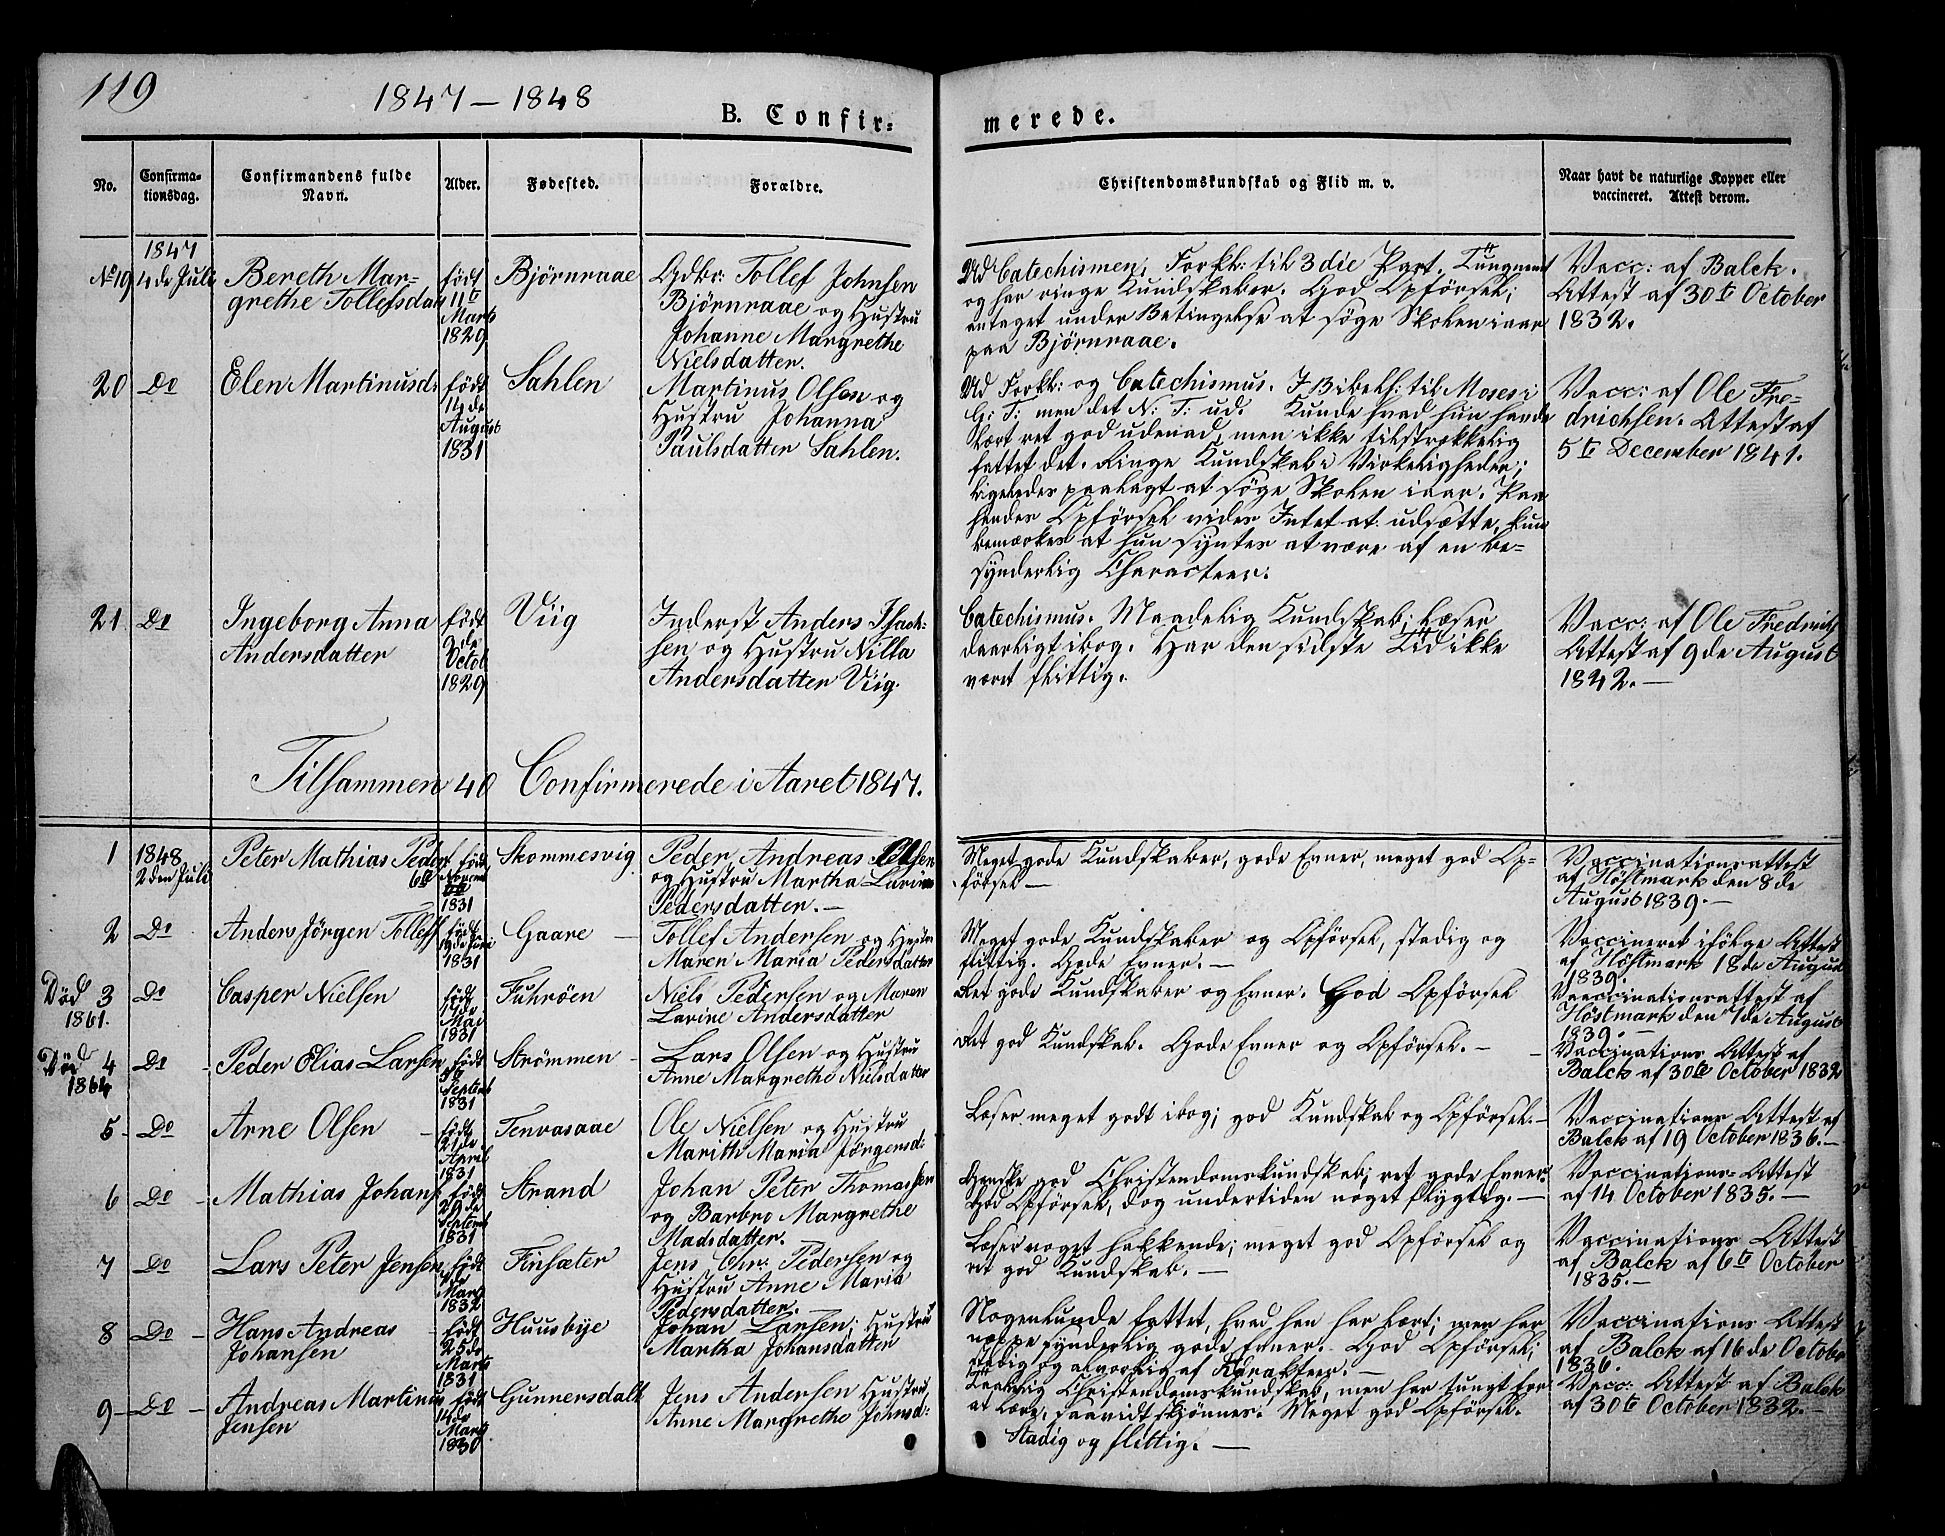 119
1847 — 1848
B. Confir=
merede.
No.
Confirma-
tionsdag.
Confirmandens fulde
Navn.
Alder.
Fødested.
Forældre.
Christendomskundskab og Flid m. v.
Naar havt de naturlige Kopper eller
vaccineret. Attest derom.
1847
No 19
4de Juli
Bereth Mar-
grethe Tollefsdatt
født
11te
Marts
1829
Björnraae
Gdbr: Tollef Johnsen
Björnraae og Hustru
Johanne Margrethe
Nielsdatter.
Ud Catechismen; Forkl: til 3die Part. Tungnemt
og har ringe Kundskaber. God Opførsel;
antaget under Betingelse at søge Skolen iaar
paa Bjørnraae.
Vacc: af Balck.
Attest af 30te October
1832.
20
Do
Elen Martinusd:
født
14de
August
1831
Sahlen
Martinus Olsen og
Hustru Johanna
Paulsdatter Sahlen.
Ud Forkl: og Catechismus. I Bibelh: til Moses i
G: T: men det N: T: ud. Kunde hvad hun havde
lært ret god udenad, men ikke tilstrækkelig
fattet det. Ringe Kundskab i Virkeligheden;
ligeledes paalagt at søge Skolen iaar. Paa
hendes Opførsel vides Intet at udsætte, kun
bemærkes at hun syntes at være af en be=
synderlig Characteer.
Vacc: af Ole Fre-
drichsen. Attest af
5te December 1841.
21
Do
Ingeborg Anna
Andersdatter
født
9de
Octob
1829
Viig
Inderst Anders Isach-
sen og Hustru Nilla
Andersdatter Viig.
Catechismus. Maadelig Kundskab; læser
daarligt ibog. Har den sidste Tid ikke
været flittig.
Vacc: af Ole Fredrichs
Attest af 9de August
1842. —
Tilsammen 40 Confirmerede i Aaret 1847.
1
1848
2den Juli
Peter Mathias Peders
født
6te
Novemb
1831
Skommesvig
Peder Andreas Olsen
og Hustru Martha Lavina
Pedersdatter. —
Meget gode Kundskaber, gode Evner, meget god Op=
førsel —
Vaccinationsattest
af Höstmark den 8de
August 1839. —
2
Do
Anders Jörgen Tollefs
født
19de Juni
1831
Gaare —
Tollef Andersen og Hustru
Maren Maria Pedersdatter
Meget gode Kundskaber og Opførsel, stadig og
flittig. Gode Evner. —
Vaccineret ifølge Attest
af Höstmark 18de August
1839.
Død
1861.
3
Do
Casper Nielsen
født
17de
Mai
1831
Fuhröen
Niels Pedersen og Maren
Lavine Andersdatter
Ret gode Kundskaber og Evner. God Opførsel
Vaccinationsattest af
Höstmark den 7de August
1839. —
Død
1864
4
Do
Peder Elias Larsen
født
Septemb
1831
Strömmen —
Lars Olsen og Hustru
Anne Margrethe Nielsdatter
Ret god Kundskab. Gode Evner og Opførsel. —
Vaccinations Attest af
Balck af 30te October 1832
5
Do
Arne Olsen —
født
21de
April
1831
Tenvasaae
Ole Nielsen og Hustru
Marith Maria Jörgensd:
Læser meget godt ibog; god Kundskab og Opførsel. —
Vaccinations Attest af
Balck af 19 October 1836. —
6
Do —
Mathias Johans
født
29de
Septemb
1831
Strand
Johan Peter Thomassen
og Barbro Margrethe
Madsdatter.
Ganske god Christendomskundskab; ret gode Evner.
God Opførsel, dog undertiden noget flygtig. —
Vaccinations- Attest
af 14 October 1835. —
7
Do
Lars Peter Jensen
født
Marts
1832
Finsæter
Jens Chr: Pedersen og
Hustru Anne Maria
Pedersdatter.
Læser noget hakkende; meget god Opførsel og
ret god Kundskab. —
Vaccinations Attest
af Balck af 6te October
1835. —
8
Do —
Hans Andreas
Johansen
født
25de
Marts
1831
Huusbye
Johan Larsen; Hustru
Martha Johansdatter
Nogenlunde fattet, hvad han har lært; men har
næppe synderlig gode Evner. God Opførsel;
stadig og alvorlig af Karakteer. —
Vaccinations Attest
af Balck af 16de October
1836.
9
Do —
Andreas Martinus
Jensen
født
14de
Marts
1830
Gunnersdalt
Jens Andersen Hustru
Anne Margrethe Johnsd:
Taalelig Christendomskundskab, men har tungt for
at lære, saavidt skjønnes. Meget god Opførsel.
Stadig og flittig. —
Vacc: Attest af Balck
af 30te October 1832. —